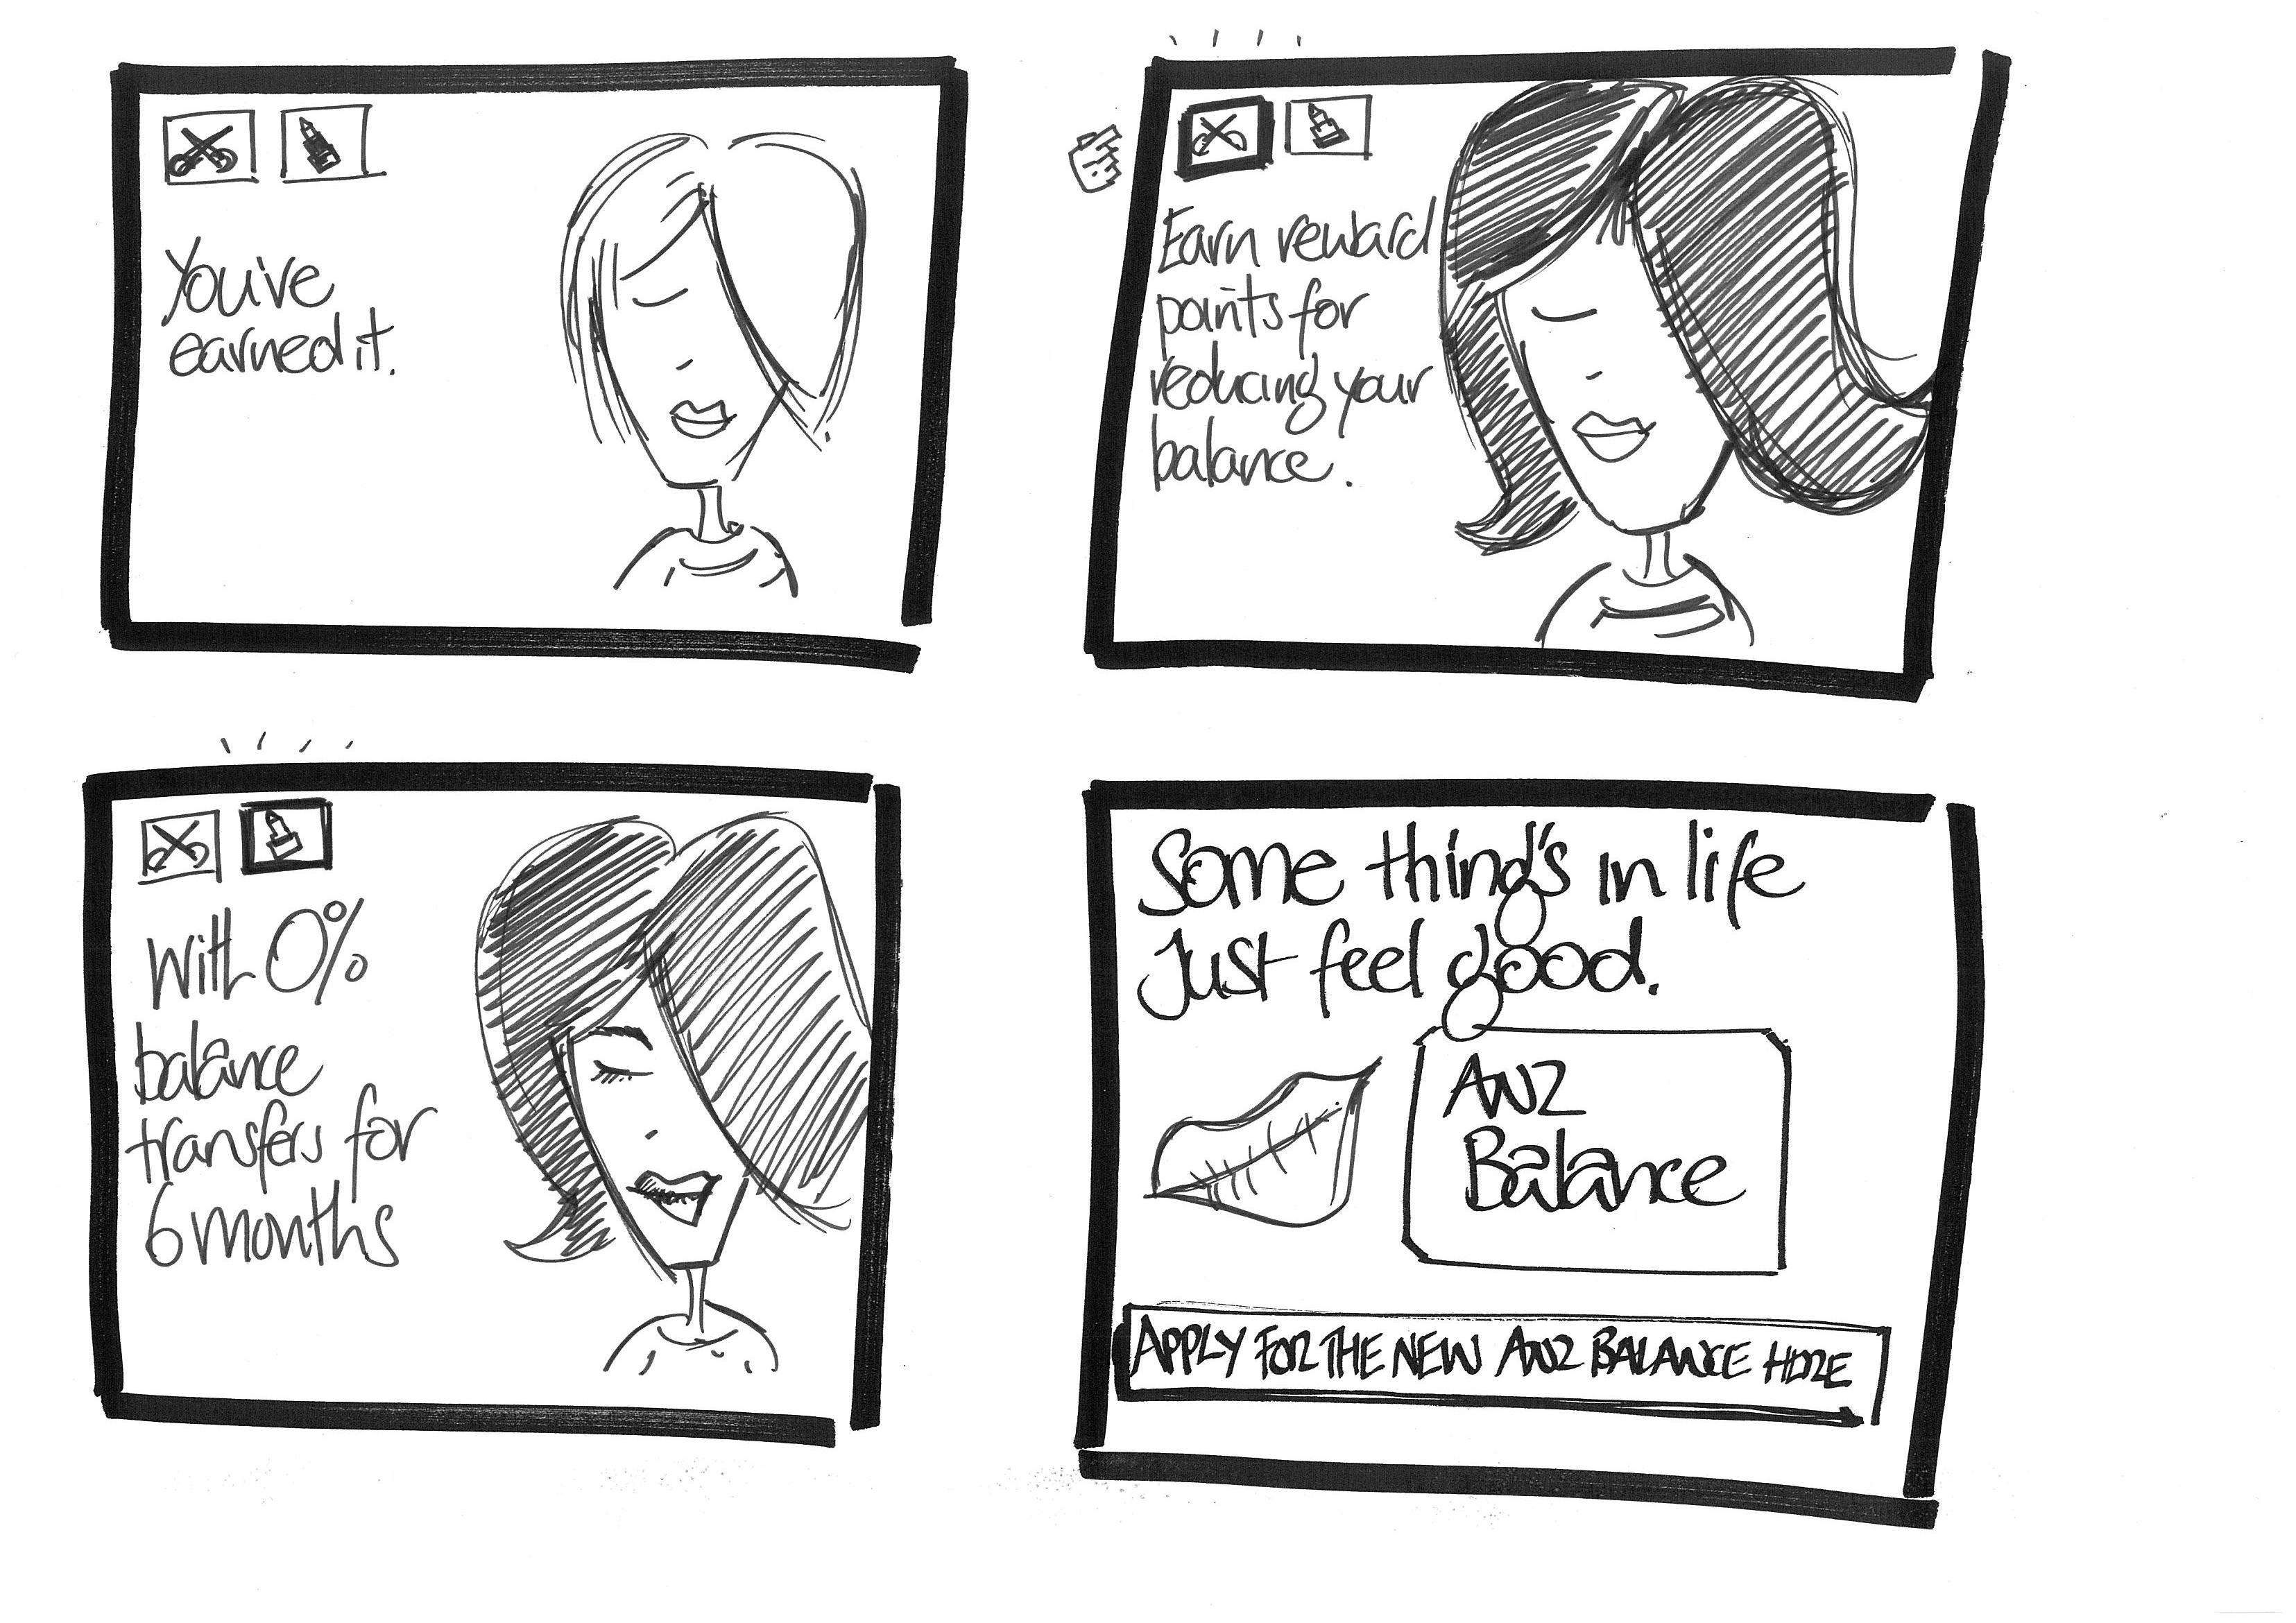 You've
earned it.
Earn reward
points for
reducing your
balance.
With 0%
balance
transfers for
6 months
Some thing's in life
Just feel good.
ANZ
Balance
APPLY FOR THE NEW ANZ BALANCE HERE